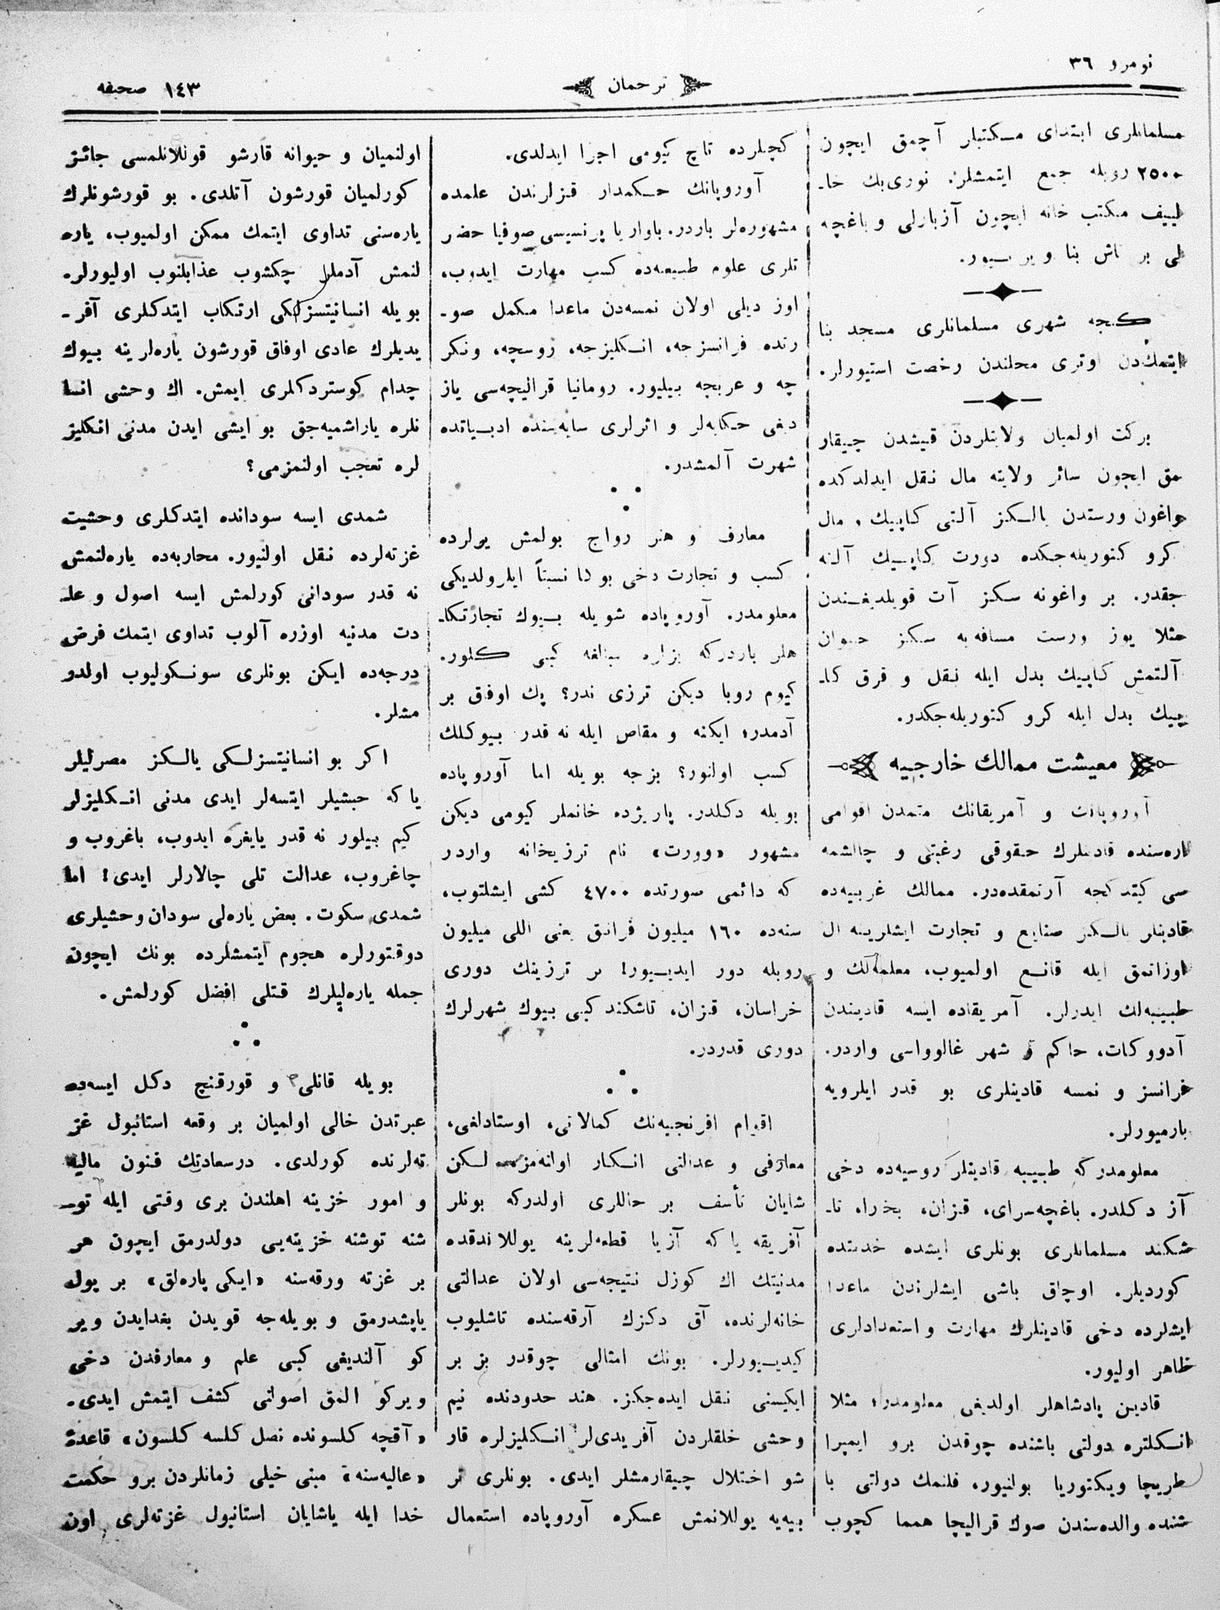 نومرو ٣٦
ترجمان
١٤٣ صحيفه
مسلمانلری ابتدای مكتبلر آچمق ایچون
٢٥٠٠ روبله جمع ایتمشلر. نوری‌بك خا‌ـ
لی بر تاش بنا ویریور.
كنجه شهری مسلمانلری مسجد بنا
ایتمك‌دن اوتری محلندن رخصت استیورلر.
بركت اولمیان ولایتلردن قیشدن چیقار
مق ایچون سائر ولایته مال نقل ایدلدكده
واغون ورستدن یالكز آلتی كاپیك و مال
كرو كتوریله‌جكده دورت كاپیك آلنه
جقدر. بر واغونه سكز آت قویلدیغندن
مثلا یوز ورست مسافه‌یه سكز حیوان
آلتمش كاپیك بدل ایله نقل و قرق كاـ
پیك بدل ایله كرو كتوریله‌جكدر.
معیشت ممالك خارجیه
آوروپانك و آمریقانك متمدن اقوامی
اره‌سنده قادینلرك حقوقی رغبتی و چالشمه
سی كیتدكجه آرتمقده‌در. ممالك غربیه‌ده
قادینلر یالكز صنایع و تجارت ایشلرینه ال
اوزاتمق ایله قانع اولمیوب، معلمه‌لك و
طبیبه‌لك ایدرلر. آمریقاده ایسه قادیندن
آدووكات، حاكم و شهر غالوواسی واردر.
فرانسز و نمسه قادینلری بو قدر ایلرویه
بارمیورلر.
معلومدركه طبیبه قادینلر روسیه‌ده دخی
آز دكلدر. باغچه‌سرای، قزان، بخارا، تاـ
شكند مسلمانلری بونلری ایشده خدمتده
كوردیلر. اوچاق باشی ایشلرندن ماعدا
ایشلرده دخی قادینلرك مهارت و استعدادلری
ظاهر اولیور.
قادین پادشاهلر اولدیغی معلومدر؛ مثلا
انكلتره دولتی باشنده چوقدن برو ایمپرا
طریچا ویكتوریا بولنیور، فلمنك دولتی با
شنده والده‌سندن صوك قرالیچا همما كچوب
كچلرده تاج كیومی اجرا ایدلدی.
آوروپانك حكمدار قزلرندن علمده
مشهوره‌لر باردر. باواریا پرنسیسی صوفیا حضر
تلری علوم طبیعه‌ده كسب مهارت ایدوب،
اوز دیلی اولان نمسه‌دن ماعدا مكمل صوـ
رتده فرانسزجه، انكلیزجه، روسچه، ونكر
چه و عربچه بیلیور. رومانیا قرالیچه‌سی یاز
دیغی حكایه‌لر و اثرلری سایه‌سنده ادبیاتده
شهرت آلمشدر.
معارف و هنر رواج بولمش یرلرده
كسب و تجارت دخی بوڭا نسبتاً ایلرولدیكی
معلومدر. آوروپاده شویله بیوك تجارتكاـ
هلر باردركه بزلره مبالغه كبی كلور.
كیوم روبا دیكن ترزی ندر؟ پك اوفاق بر
آدمدر، ایكنه و مقاص ایله نه قدر بیوكلك
كسب اولنور؟ بزجه بویله اما آوروپاده
بویله دكلدر. پاریژده خانملر كیومی دیكن
مشهور «وورت» نام ترزیخانه واردر
كه دائمی صورتده ٤٧٠٠ كشی ایشلتوب،
سنه‌ده ١٦٠ میلیون فرانق یعنی اللی میلیون
روبله دور ایدیور! بر ترزینك دوری
خراسان، قزان، تاشكند كبی بیوك شهرلرك
دوری قدردر.
اقوام افرنجیه‌نك كمالاتی، اوستادلغی،
معارفی و عدالتی انكار اولنه‌مز. لكن
شایان تأسف بر حاللری اولدركه بونلر
آفریقه یاكه آزیا قطعه‌لرینه یوللاندقده
مدنیتك اك كوزل نتیجه‌سی اولان عدالتی
خانه‌لرنده، آق دكزك آرقه‌سنده تاشلیوب
كیدیورلر. بونك امثالی چوقدر بز بر
ایكیسنی نقل ایده‌جكز. هند حدودنده نیم
وحشی خلقلردن آفریدی‌لر انكلیزلره قار
شو اختلال چیقارمشلر ایدی. بونلری تر
بیه‌یه یوللانمش عسكره آوروپاده استعمال
اولنمیان و حیوانه قارشو قوللانلمسی جائز
كورلمیان قورشون آتلدی. بو قورشونلرك
یاره‌سنی تداوی ایتمك ممكن اولمیوب، یاره
لنمش آدملر چكشوب عذابلنوب اولیورلر.
بویله انسانیتسزلكی ارتكاب ایتدكلری آفرـ
یدیلرك عادی اوفاق قورشون یاره‌لرینه بیوك
چدام كوستردكلری ایمش. اك وحشی انسا
نلره یاراشمیه‌جق بو ایشی ایدن مدنی انكلیز
لره تعجب اولنمزمی؟
شمدی ایسه سودانده ایتدكلری وحشیت
غزته‌لرده نقل اولنیور. محاربه‌ده یاره‌لنمش
نه قدر سودانی كورلمش ایسه اصول و عاـ
دت مدنیه اوزره آلوب تداوی ایتمك فرض
درجه‌ده ایكن بونلری سونكولیوب اولدو
مشلر.
اكر بو انسانیتسزلكی یالكز مصرلیلر
یاكه حبشیلر ایتسه‌لر ایدی مدنی انكلیزلر
كیم بیلور نه قدر یایغره ایدوب، باغروب و
چاغروب، عدالت تلی چالارلر ایدی! اما
شمدی سكوت. بعض یاره‌لی سودان وحشیلری
دوقتورلره هجوم ایتمشلرده بونك ایچون
جمله یاره‌لیلرك قتلی افضل كورلمش.
بویله قانلی و قورقنچ دكل ایسه‌ده
عبرتدن خالی اولمیان بر وقعه استانبول غز
ته‌لرنده كورلدی. درسعادتك فنون مالیه
و امور خزینه اهلندن بری وقتی ایله توـ
شنه توشنه خزینه‌یی دولدرمق ایچون هر
بر غزته ورقه‌سنه «ایكی پاره‌لق» بر پول
یاپشدرمق و بویله‌جه قویدن بغدایدن ویر
كو آلندیغی كبی علم و معارفدن دخی
ویركو المق اصولنی كشف ایتمش ایدی.
«آقچه كلسونده نصل كلسه كلسون» قاعدهٔ
«عالیه‌سنه» مبنی خیلی زمانلردن برو حكمت
خدا ایله یاشایان استانبول غزته‌لری اون